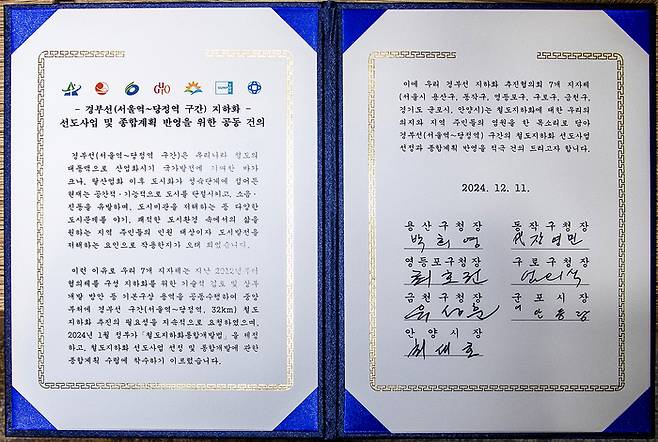 - 경부선(서울역~당정역 구간) 지하화 -
선도사업 및 종합계획 반영을 위한 공동 건의
경부선(서울역~당정역 구간)은 우리나라 철도의
대동맥으로 산업화시기 국가발전에 기여한 바가
크나, 탈산업화 이후 도시화가 성숙단계에 접어든
현재는 공간적·기능적으로 도시를 단절시키고, 소음·
진동을 유발하며, 도시미관을 저해하는 등 다양한
도시문제를 야기, 쾌적한 도시환경 속에서의 삶을
원하는 지역 주민들의 민원 대상이자 도시발전을
저해하는 요인으로 작용한지가 오래 되었습니다.
이런 이유로 우리 7개 지자체는 지난 2012년부터
협의체를 구성 지하화를 위한 기술적 검토 및 상부
개발 방안 등 기본구상 용역을 공동수행하여 중앙
부처에 경부선 구간(서울역~당정역, 32km) 철도
지하화 추진의 필요성을 지속적으로 요청하였으며,
2024년 1월 정부가 「철도지하화통합개발법」을 제정
하고, 철도지하화 선도사업 선정 및 통합개발에 관한
종합계획 수립에 착수하기 이르렀습니다.
이에 우리 경부선 지하화 추진협의회 7개 지자체
(서울시 용산구, 동작구, 영등포구, 구로구, 금천구,
경기도 군포시, 안양시)는 철도지하화에 대한 우리의
의지와 지역 주민들의 염원을 한 목소리로 담아
경부선(서울역~당정역) 구간의 철도지하화 선도사업
선정과 종합계획 반영을 적극 건의 드리고자 합니다.
2024. 12. 11.
용산구청장 동작구청장
박희영
영등포구청장 구로구청장
최호권
금천구청장 군포시장
안양시장
최대호